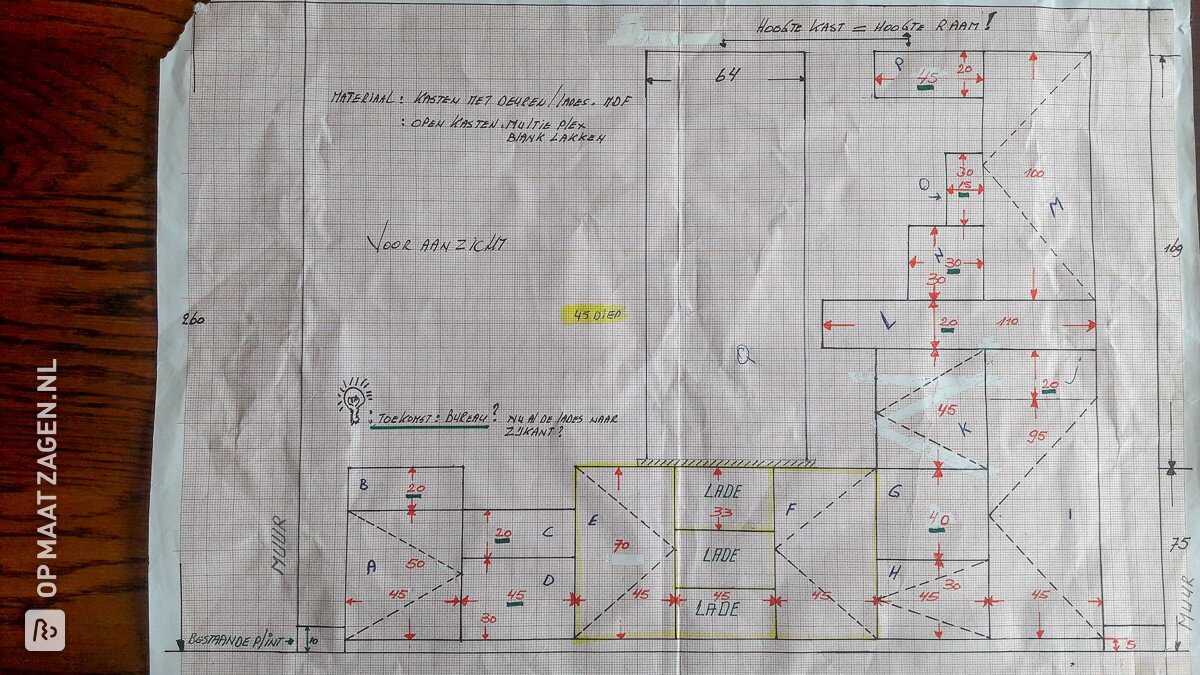 HOOGTE KAST = HOOGTE RAAM!
64
P
20
45
MATERIAAL: KASTEN MET DEUREN/LADES. MDF
: OPEN KASTEN. MULTIE PLEX
BLANK LAKKEN
30
O
15
100
M
VOOR AANZICHT
N
30
30
169
260
45 DIEP
L
20
110
Q
20
J
45
K
95
: TOEKOMST: BUREAU? NU AL DE LADES NAAR
ZIJKANT?
B
20
E
LADE
33
F
G
C
20
40
I
70
LADE
75
A
50
D
H
30
45
45
45
45
45
45
45
LADE
30
MUUR
MUUR
BESTAANDE PLINT
10
5
OP MAAT ZAGEN.NL